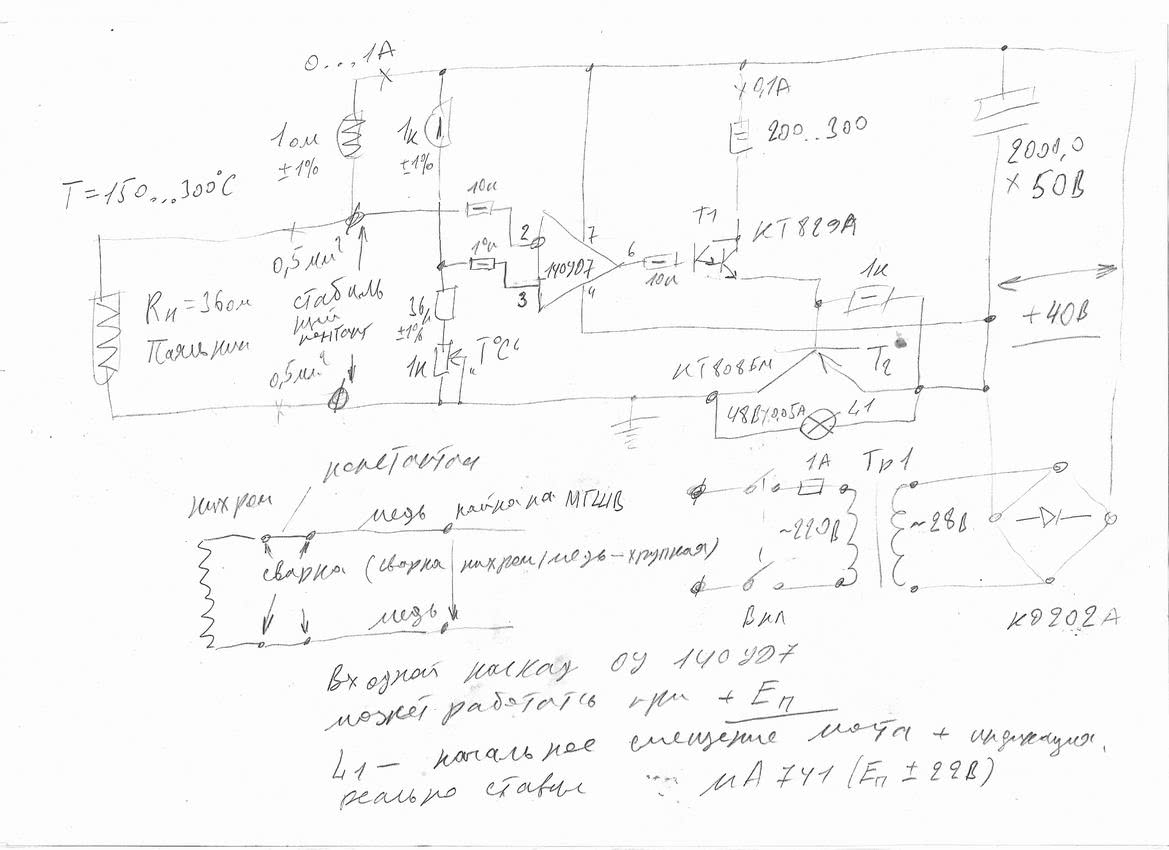 0...1А
1 ом
±1%
1к
±1%
0,1А
200...300
2000,0
× 50В
Т = 150...300°С
10к
2
7
140УД7
6
3
4
10к
10к
Т1
КТ829А
1к
+40В
0,5 мм²
Rн = 36 ом
Паяльник
стабиль
ный
контакт
36к
±1%
1к
"Т°С"
0,5 мм²
КТ808БМ
Т2
48В×0,05А
L1
константан
нихром
медь
пайка на МГШВ
сварка (сварка нихром/медь – хрупкая)
медь
1А
Тр1
~220В
~28В
Вкл
КД202А
Входной каскад ОУ 140УД7
может работать при + Eп
L1 – начальное смещение моста + индикация.
реально ставил μА 741 (Eп ± 22В)